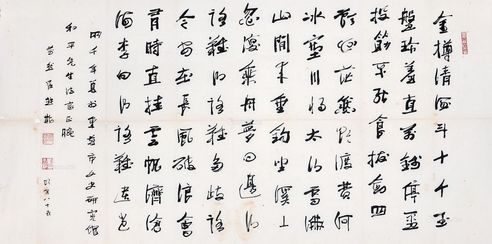 金樽清酒斗十千玉
盤珍羞直萬錢停盃
投筯不能食拔劍四
顧心茫然欲渡黃河
冰塞川將太行雪滿
山閒來垂釣坐溪上
忽復乘舟夢日邊行
路難行路難多岐路
今安在長風破浪會
有時直挂雲帆濟滄
海李白行路難
和平先生法家正腕